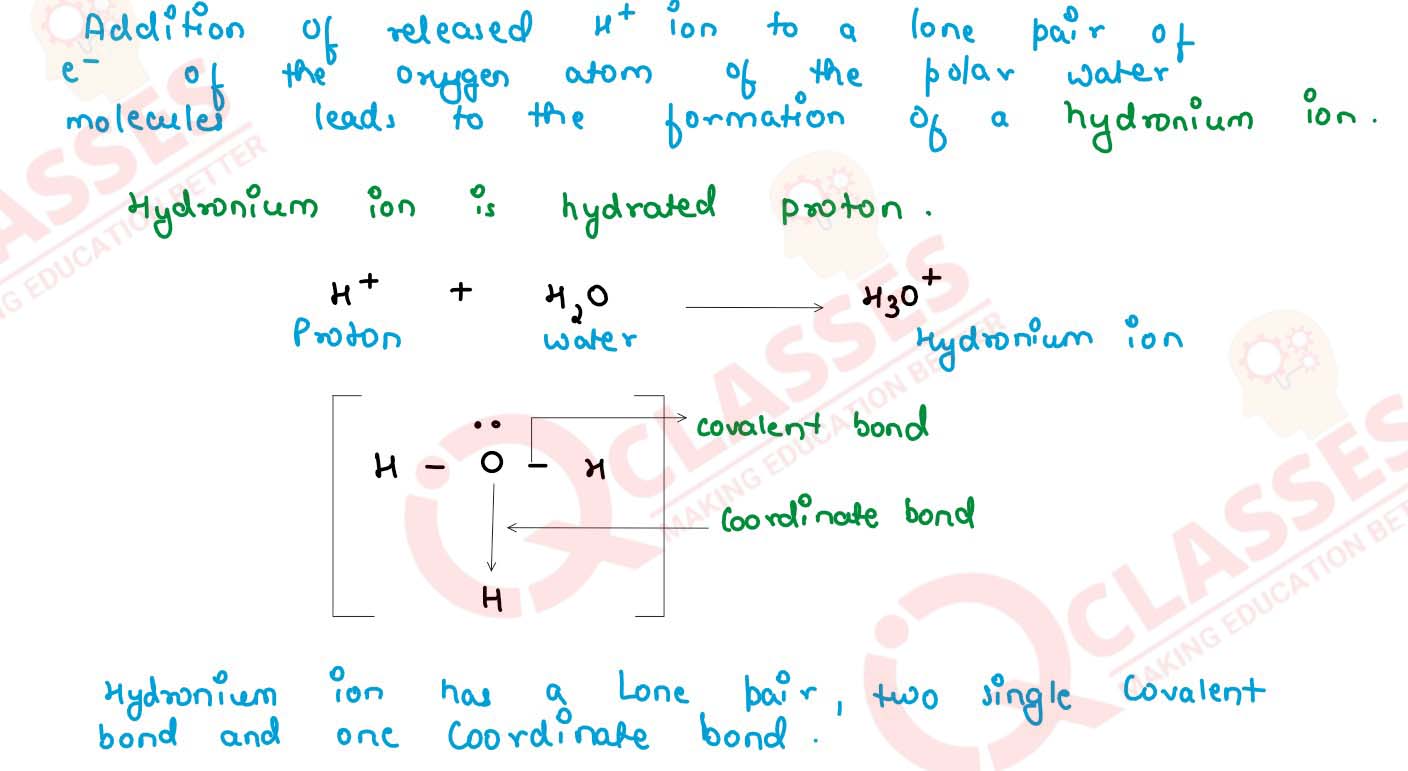 Addition of released H⁺ ion to a lone pair of
e⁻ of the oxygen atom of the polar water
molecules leads to the formation of a hydronium ion.
Hydronium ion is hydrated proton.
H⁺ + H₂O ⟶ H₃O⁺
Proton water Hydronium ion
covalent bond
H - O - H
coordinate bond
H
Hydronium ion has a Lone pair, two single Covalent
bond and one Coordinate bond.
CLASSES
MAKING EDUCATION BETTER
CLASSES
MAKING EDUCATION BETTER
CLASSES
MAKING EDUCATION BE